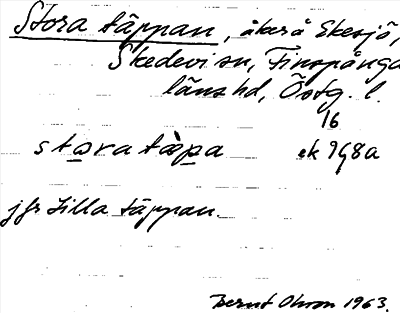 Stora täppan, åker å Ekesjö,
Skedevi sn, Finspånga
läns hd, Östg. l.
16
stora täpa ek 968a
jfr Lilla täppan.
Bernt Olson 1963.